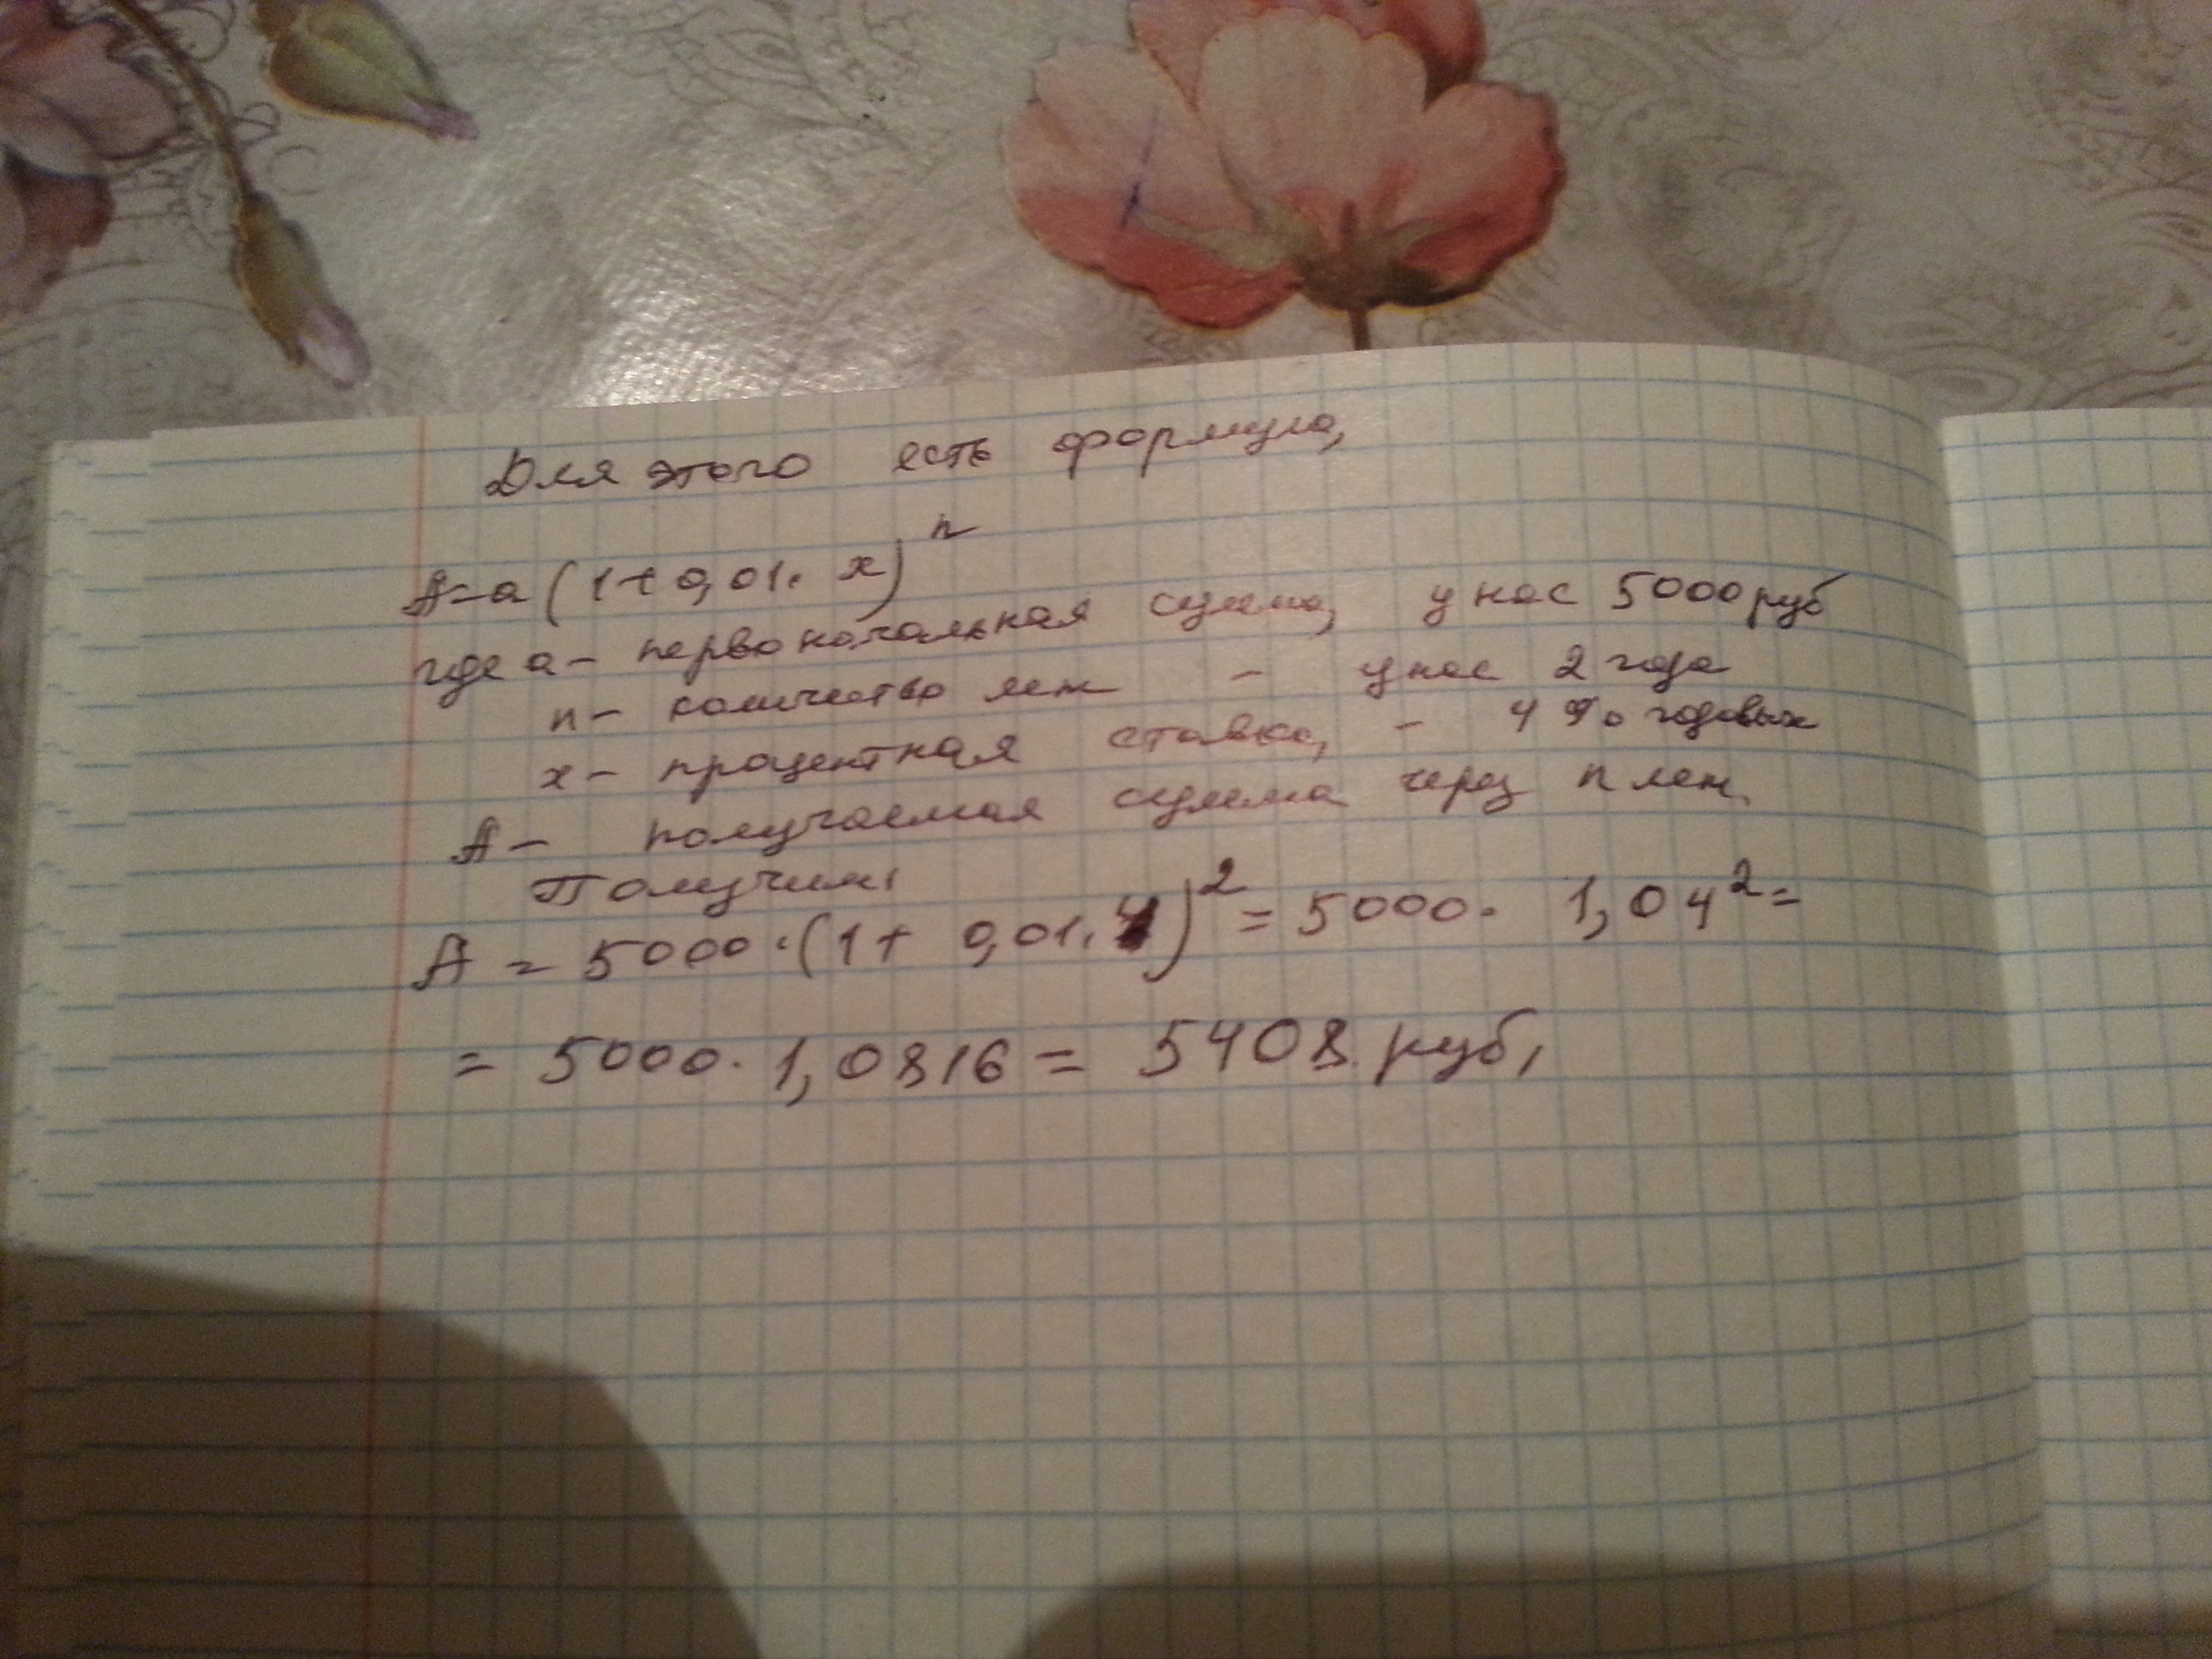 Для этого есть формула,
A=a(1+0,01·x)ⁿ
где a- первоначальная сумма, у нас 5000руб
n- количество лет - у нас 2 года
x- процентная ставка, - 4% годовых
A- получаемая сумма через n лет.
Получим:
A = 5000·(1+ 0,01·4)² = 5000· 1,04² =
= 5000· 1,0816 = 5408 руб,